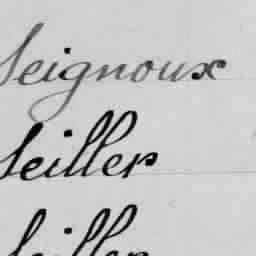 Seignoux
Seiller
Seiller